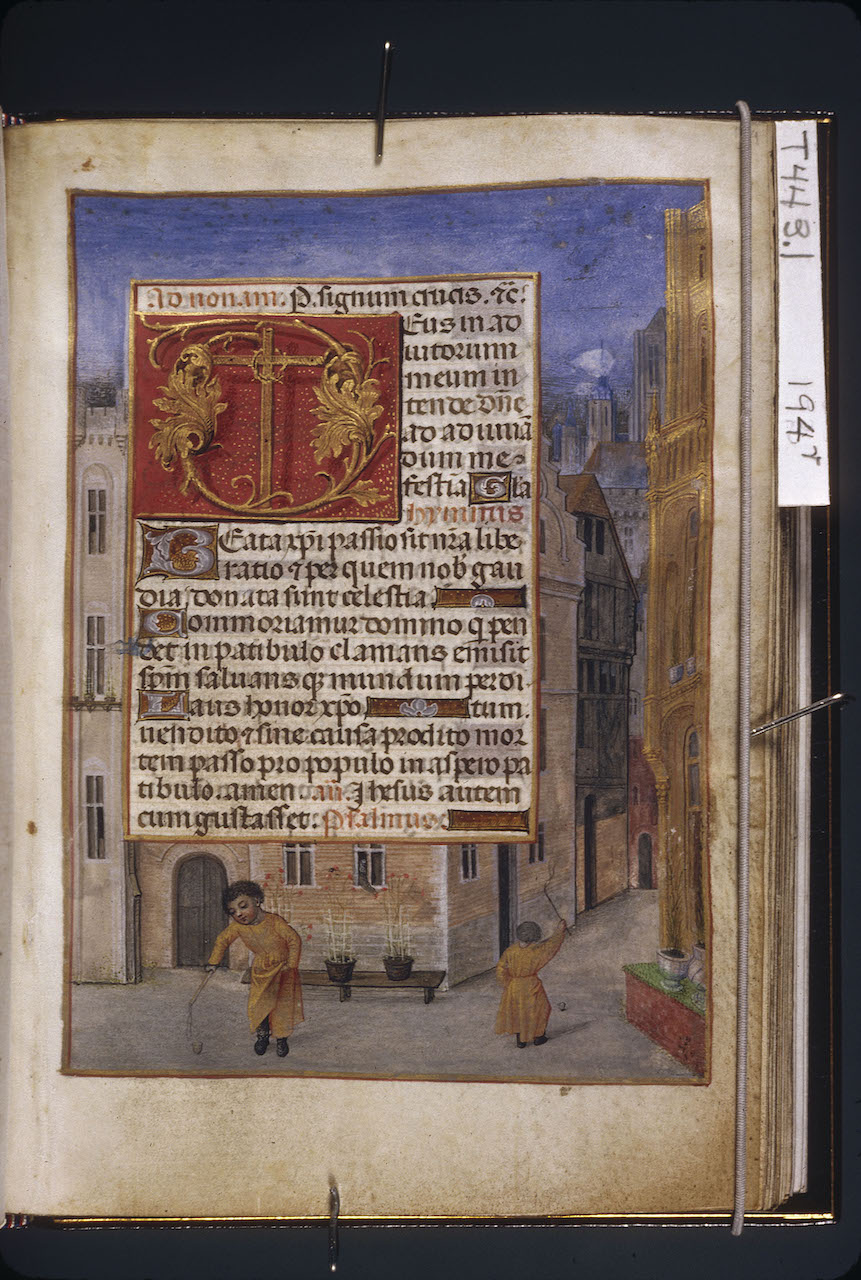 Ad nonam. P. signum crucis. ⁊c̃.
Deus in ad
iutorium
meum in
tende dñe
ad adiuuā
dum me
festīa Gla
hymnus
Beata xp̄i passio sit nr̄a libe
ratio ⁊ per quem nob̄ gau
dia donata sunt celestia
Commoriamur domino q̄ pen
det in patibulo clamans emisit
sp̄m saluans q̄ꝫ mundum perdi
Laus honor xp̄o tum.
uendito ⁊ sine causa prodito mor
tem passo pro populo in aspero pa
tibulo. amen an̄ Jhesus autem
cum gustasset: Psalmus.
T443.1
194r